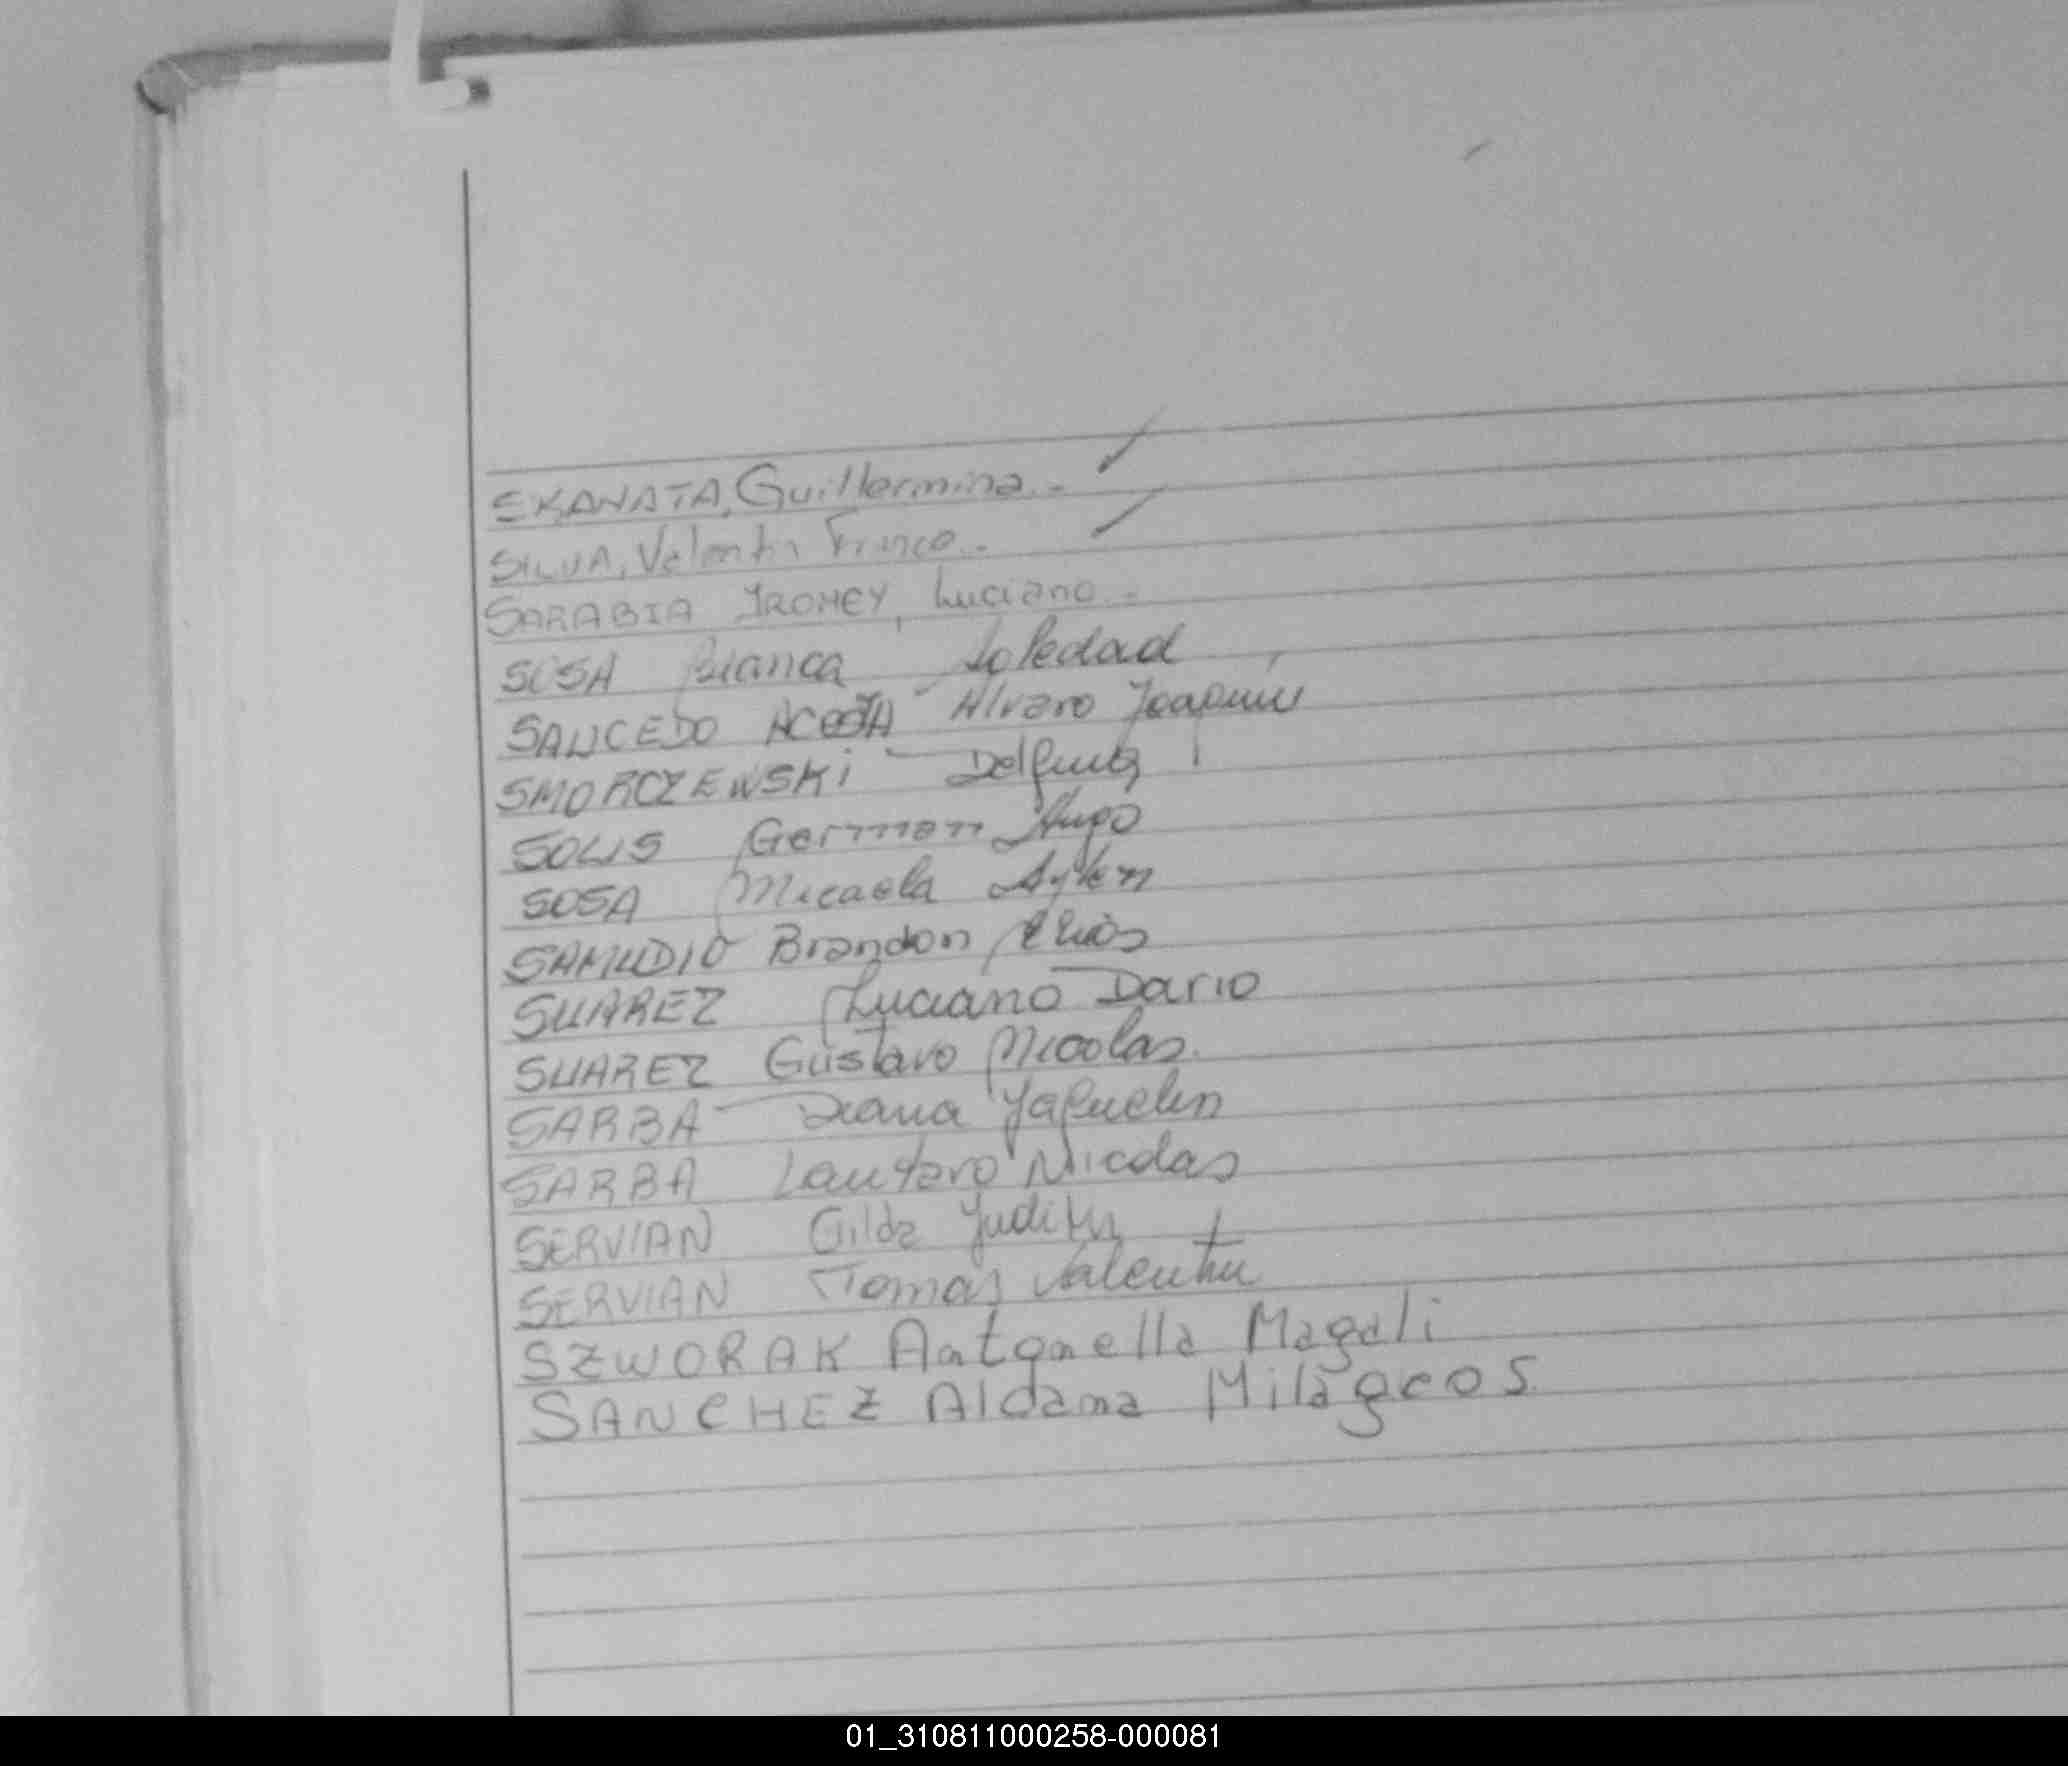 SKANATA, Guillermina.-
SILVA, Valentin Franco.-
SARABIA IROMEY, Luciano.-
SOSA Bianca Soledad
SAUCEDO ACOSTA Alvaro Joaquin
SMORCZEWSKI Delfina
SOLIS German Hugo
SOSA Micaela Aylen
SAMUDIO Brandon Elias
SUAREZ Luciano Dario
SUAREZ Gustavo Nicolas.
SARBA Diana Yaquelin
SARBA Lautaro Nicolas
SERVIAN Gilda Judith
SERVIAN Tomas Valentin
SZWORAK Antonella Magali
SANCHEZ Aldana Milagros
01_310811000258-000081